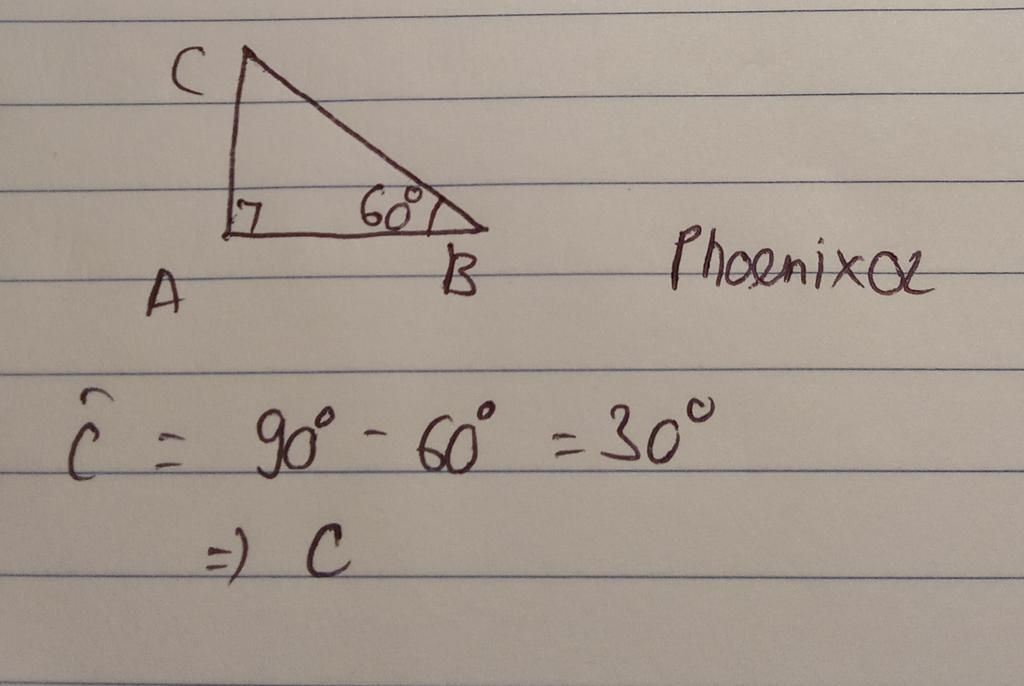 C
60°
A
B
Phoenixα
Ĉ = 90° - 60° = 30°
=) C